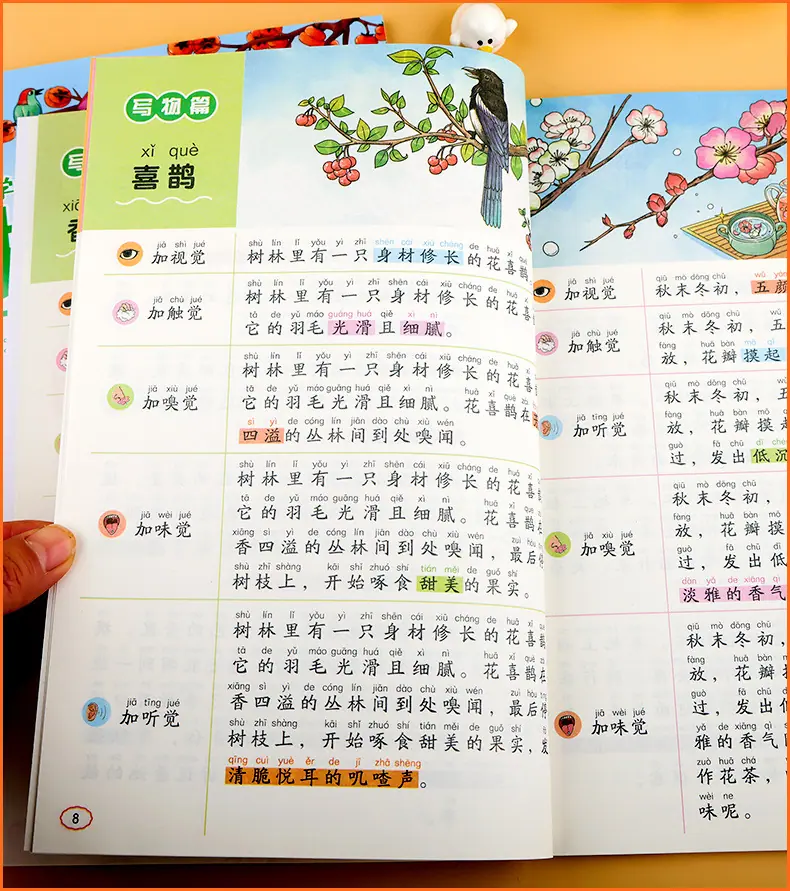 写物篇
xǐ què
喜鹊
jiā shì jué
加视觉
shù lín lǐ yǒu yì zhī shēn cái xiū cháng de huā xǐ
树林里有一只身材修长的花喜鹊
jiā chù jué
加触觉
shù lín lǐ yǒu yì zhī shēn cái xiū cháng de huā xǐ
树林里有一只身材修长的花喜
tā de yǔ máo guāng huá qiě xì nì
它的羽毛光滑且细腻。
jiā xiù jué
加嗅觉
shù lín lǐ yǒu yì zhī shēn cái xiū cháng de huā
树林里有一只身材修长的花喜
tā de yǔ máo guāng huá qiě xì nì huā xǐ què zài
它的羽毛光滑且细腻。花喜鹊在
sì yì de cóng lín jiān dào chù xiù wén
四溢的丛林间到处嗅闻。
jiā wèi jué
加味觉
shù lín lǐ yǒu yì zhī shēn cái xiū cháng de huā
树林里有一只身材修长的花喜
tā de yǔ máo guāng huá qiě xì nì huā xǐ què
它的羽毛光滑且细腻。花喜鹊在
xiāng sì yì de cóng lín jiān dào chù xiù wén zuì hòu
香四溢的丛林间到处嗅闻，最后
shù zhī shàng kāi shǐ zhuó shí tián měi de guǒ shí
树枝上，开始啄食甜美的果实。
jiā tīng jué
加听觉
shù lín lǐ yǒu yì zhī shēn cái xiū cháng de huā
树林里有一只身材修长的花喜
tā de yǔ máo guāng huá qiě xì nì huā xǐ què
它的羽毛光滑且细腻。花喜鹊在
xiāng sì yì de cóng lín jiān dào chù xiù wén zuì hòu
香四溢的丛林间到处嗅闻，最后停
shù zhī shàng kāi shǐ zhuó shí tián měi de guǒ shí
树枝上，开始啄食甜美的果实，发
qīng cuì yuè ěr de jī zhā shēng
清脆悦耳的叽喳声。
8
jiā shì jué
加视觉
qiū mò dōng chū wǔ yán
秋末冬初，五颜
jiā chù jué
加触觉
qiū mò dōng chū
秋末冬初，五
fàng huā bàn mō qǐ
放，花瓣摸起
jiā tīng jué
加听觉
qiū mò dōng chū
秋末冬初，五
fàng huā bàn mō
放，花瓣摸
guò fā chū dī chén
过，发出低沉
jiā xiù jué
加嗅觉
qiū mò dōng chū
秋末冬初，
fàng huā bàn mō
放，花瓣摸
guò fā chū dī
过，发出低
dàn yǎ de xiāng qì
淡雅的香气
jiā wèi jué
加味觉
qiū mò dōng chū
秋末冬初，
fàng huā bàn
放，花瓣
guò fā chū
过，发出
yǎ de xiāng qì
雅的香气
zuò huā chá
作花茶，
wèi ne
味呢。